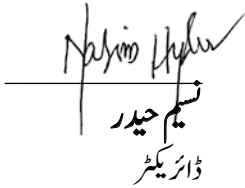 Nasim Hyder
نسیم حیدر
ڈائریکٹر